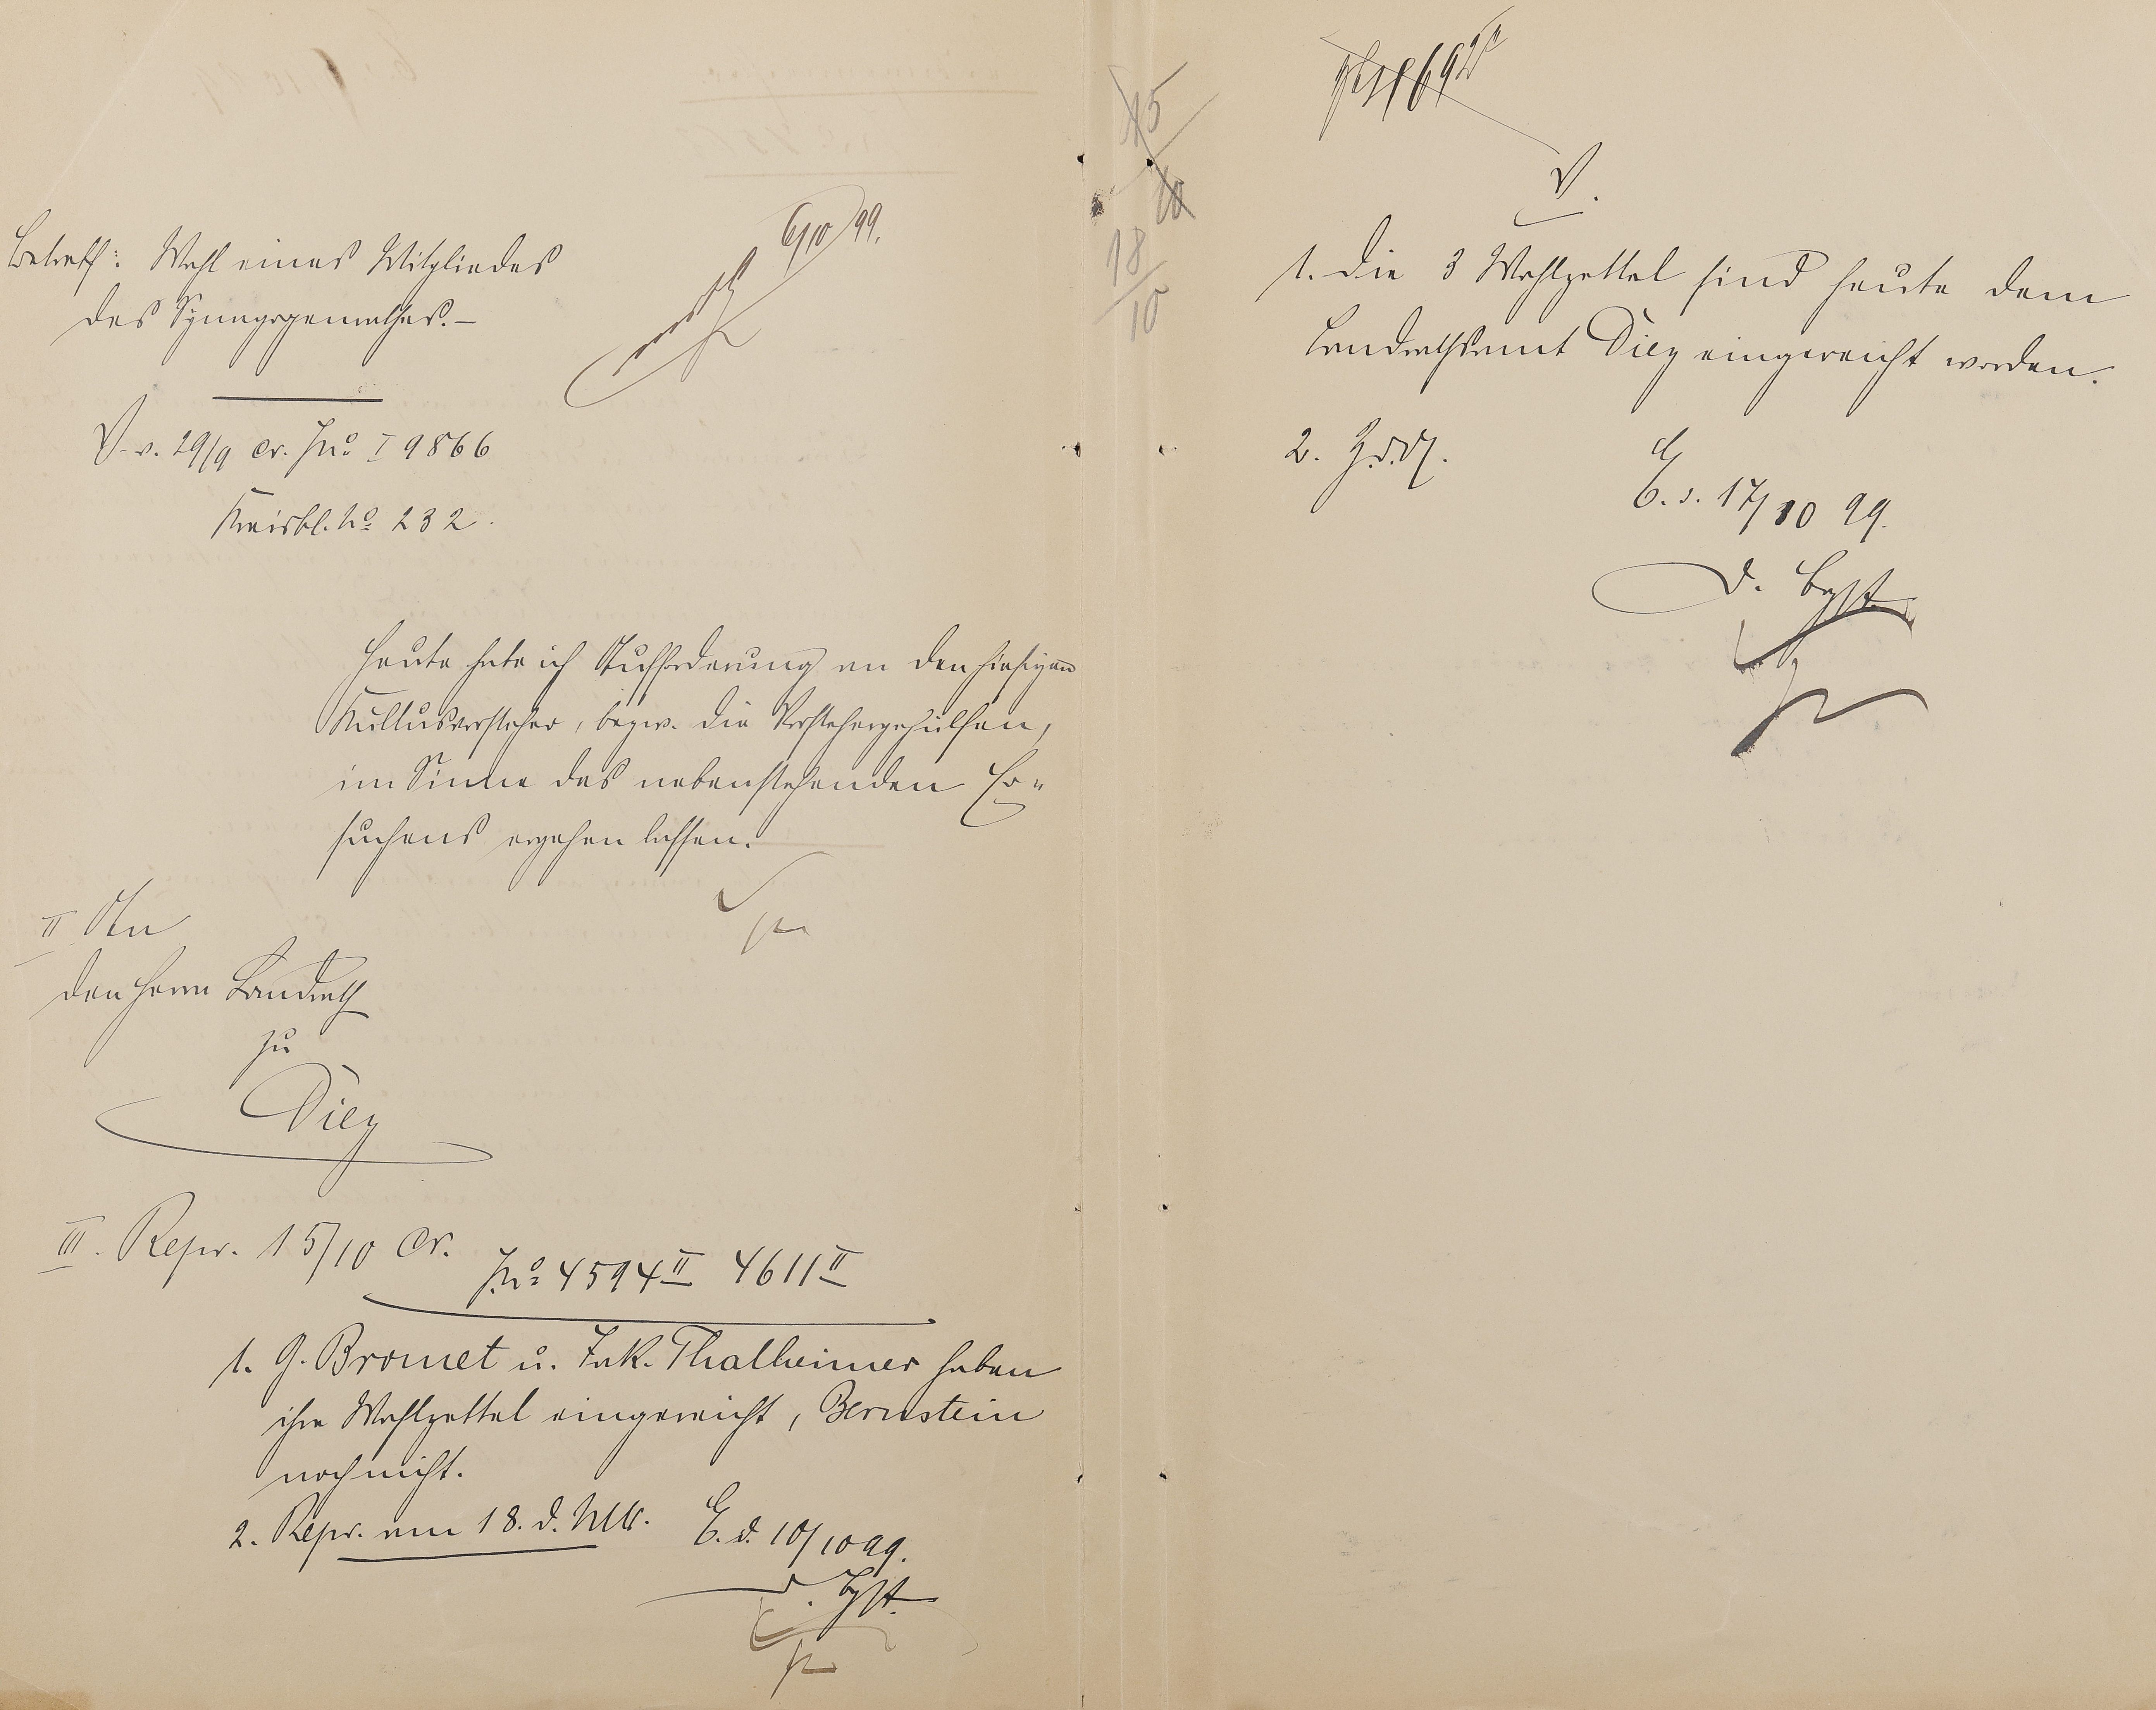 Betreff: Wahl eines Mitgliedes
des Synagogenrathes.—
6/10 99.
V. v. 29/9 cr. Jno I 9866
Kreisbl. No 232.
Heute habe ich Aufforderung an den hiesigen
Kultusvorsteher, bezw. die Vorstehergehülfen,
im Sinne des nebenstehenden Er-
suchens ergehen lassen.
II An
den Herrn Landrath
zu
Diez
III. Repr. 15/10 cr.
J.No 4594 II 4611 II
1. G. Bromet u. Jak. Thalheimer haben
ihre Wahlzettel eingereicht, Bernstein
noch nicht.
2. Repr. am 18. d. Mts.
E. d. 10/10 99.
d. Bgst.
15/10
18/10
V.
1. Die 3 Wahlzettel sind heute dem
Landrathsamt Diez eingereicht worden.
2. Z. d. A.
E. d. 17/10 99.
D. Bgst.